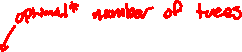 optimal* number of trees